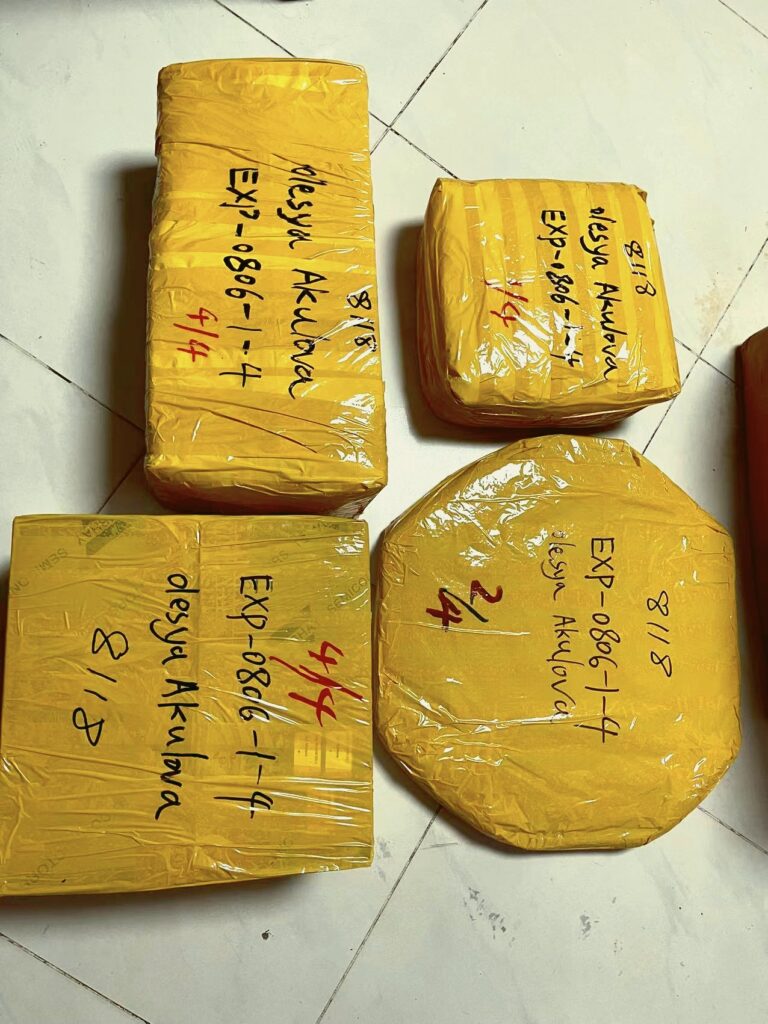 8118
olesya Akulova
EXP-0806-1-4
4/4
8118
olesya Akulova
EXP-0806-1-4
1/4
4/4
EXP-0806-1-4
olesya Akulova
8118
8118
EXP-0806-1-4
olesya Akulova
2/4